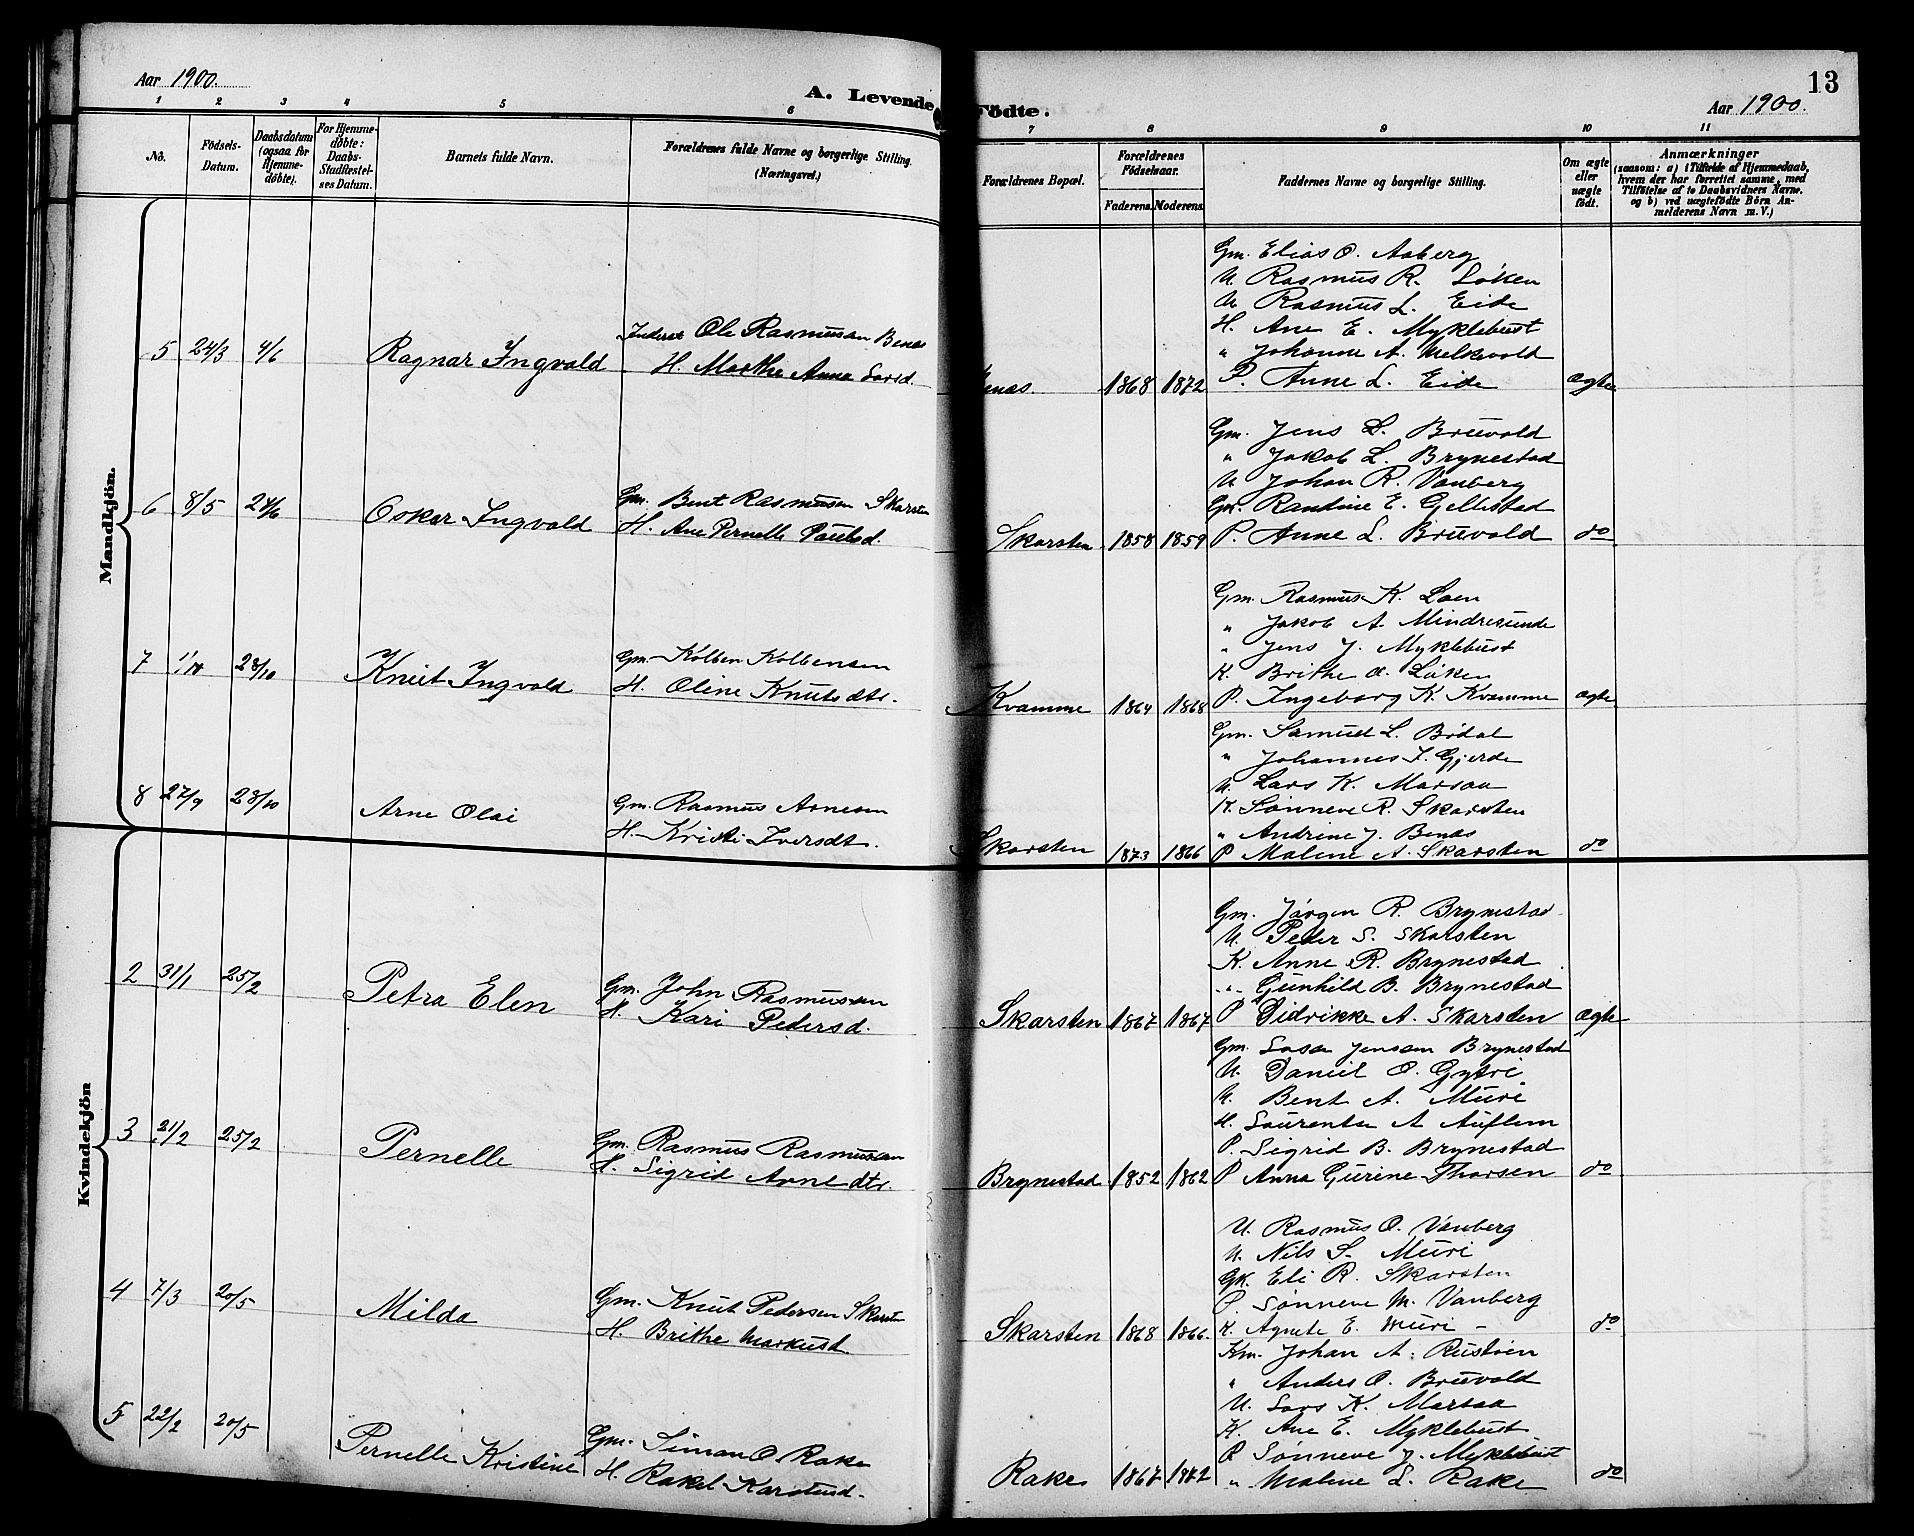 Aar 1900.
A. Levende Födte.
13
Aar 1900.
1 2 3 4 5 6 7 8 9 10 11
No.
Födsels-Datum.
Daabsdatum (ogsaa for Hjemme-døbte).
For Hjemme-døbte: Daabs-Stadfæstel-ses Datum.
Barnets fulde Navn.
Forældrenes fulde Navne og borgerlige Stilling. (Næringsvei.)
Forældrenes Bopæl.
Forældrenes Födselsaar.
Faderens. Moderens.
Faddernes Navne og borgerlige Stilling.
Om ægte eller uægte født.
Anmærkninger
(saasom: a) i Tilfælde af Hjemmedaab, hvem der har forrettet samme, med Tilføielse af to Daabsvidners Navne. og b) ved uægtefödte Börn An-melderens Navn m. V.)
Mandkjön.
5 24/3 4/6 Ragnar Ingvald
Inderst Ole Rasmussen Benes
H. Marthe Anna Larsd.
1868 1872
Gm. Elias O. Aaberg
U. Rasmus R. Løken
U. Rasmus L. Eide
H. Ane E. Myklebust
" Johanne A. Melkevold
P. Anne L. Eide ægte
6 8/5 24/6 Oskar Ingvald
Gm. Bent Rasmusen Skarsten
H. Ane Pernelle Paulsd.
Skarsten 1858 1859
Gm. Jens L. Bruvold
" Jakob L. Brynestad
U. Johan R. Vanberg
Gk. Randine E. Gellestad
P. Anne L. Bruvold do
7 1/10 28/10 Knut Ingvald
Gm. Kolben Kolbensen
H. Oline Knutsdtr.
Kvamme 1864 1868
Gm. Rasmus K. Loen
" Jakob A. Mindresunde
" Jens J. Myklebust
K. Brithe A. Løken
P. Ingeborg K. Kvamme ægte
8 27/9 28/10 Arne Olai
Gm. Rasmus Arnesen
H. Kristi Iversdt.
Skarsten 1873 1866
Gm. Samuel L. Bødal
" Johannes I. Gjerde
U. Lars K. Marsaa
K. Sønneve R. Skarsten
" Andrine J. Benes
P Malene A. Skarsten do
Kvindekjön
2 31/1 25/2 Petra Elen
Gm. John Rasmussen
H. Kari Pedersd.
Skarsten 1867 1867
Gm. Jørgen R. Brynestad
U. Peder S. Skarsten
K. Anne R. Brynestad
" Gunhild B. Brynestad
P Didrikke A. Skarsten ægte
3 21/2 25/2 Pernelle
Gm. Rasmus Rasmussen
H. Sigrid Arnedtr.
Brynestad 1852 1862
Gm. Lasse Jensen Brynestad
U. Daniel O. Gytri
U. Bent A. Muri
H. Laurentse A Auflem
P. Sigrid B. Brynestad
P Anna Gurine Thorsen do
4 7/3 20/5 Milda
Gm. Knut Pedersen Skarsten
H. Brithe Markusd.
Skarsten 1868 1866.
U. Rasmus O. Vanberg
U. Nils S. Muri
Gk. Eli R. Skarsten
P. Sønneve M. Vanberg
K. Agnete E. Muri - do
5 22/2 20/5 Pernelle Kristine
Gm. Simon O. Rake
H. Rakel Karstensd.
Rake 1867 1872
Km. Johan A. Rustøen
" Anders O. Bruvold
U. Lars K. Marsaa
K. Ane E. Myklebust
P Sønneve J. Myklebust
" Malene L. Rake do